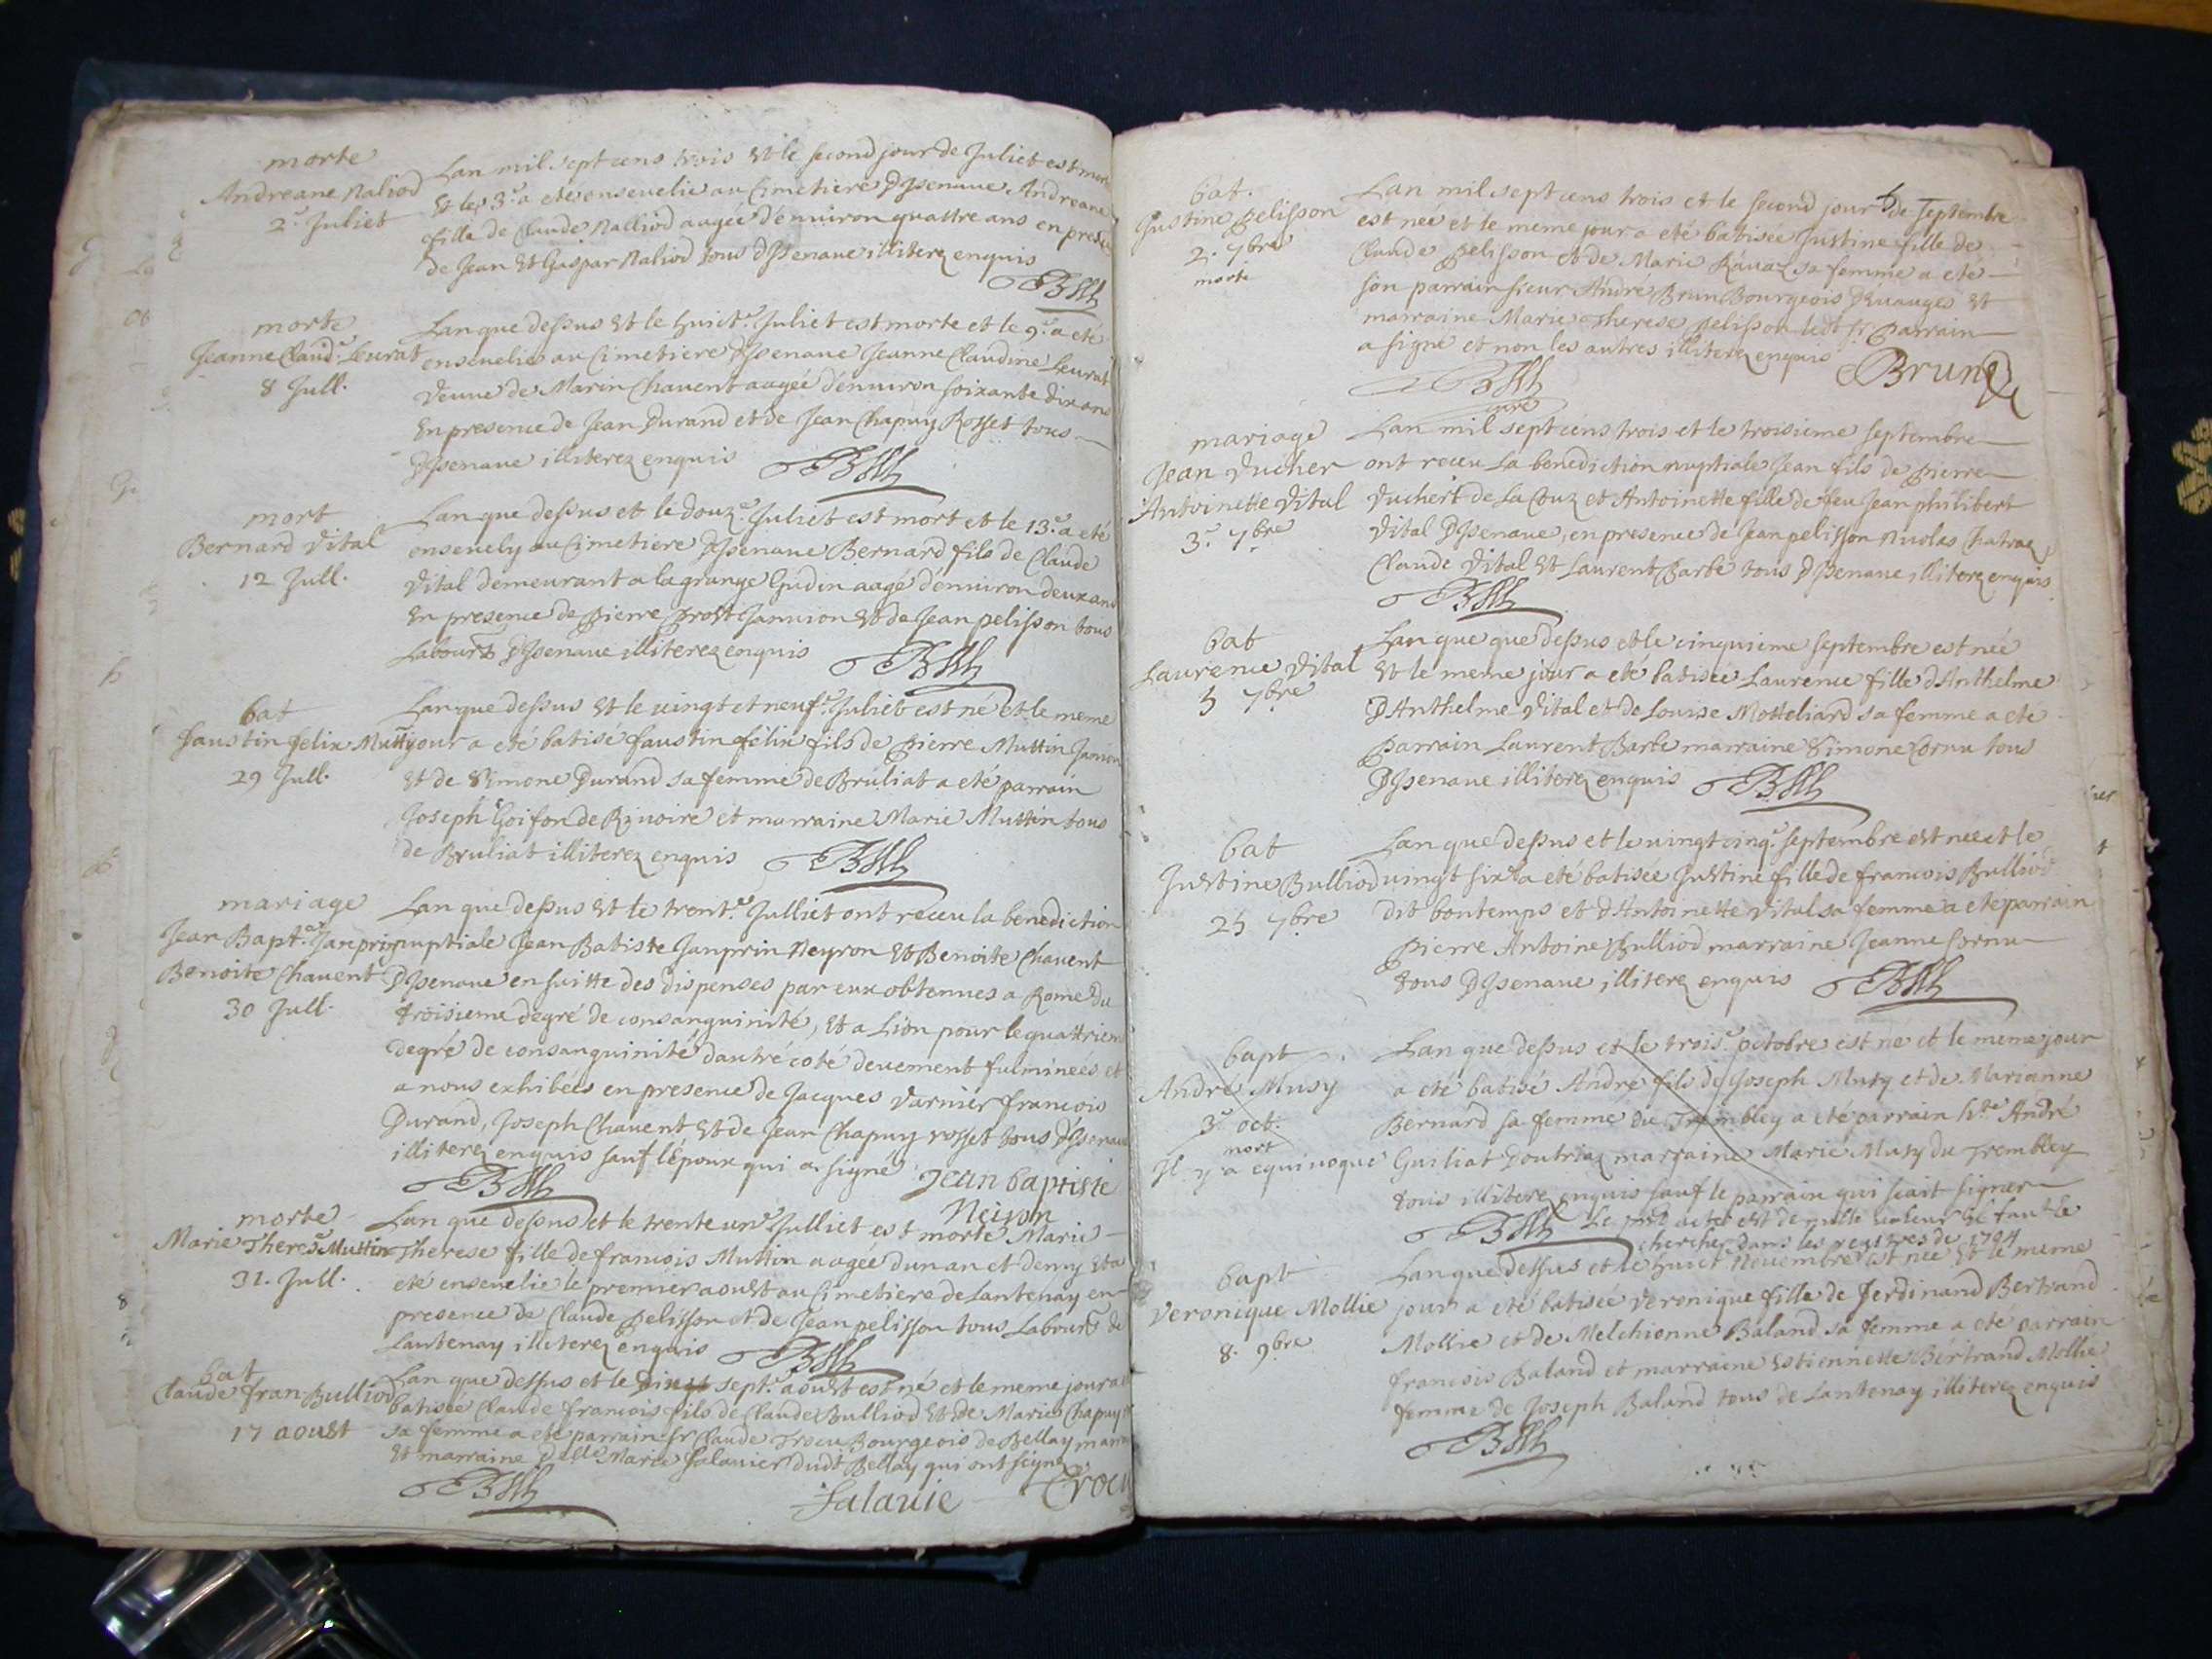 morte
Andreane Naliod
2.e Juliet
Lan mil sept cens trois Et le second jour de Juliet est morte
Et le 3.e a eté ensevelie au Cimetiere Dysenave Andreane
fille de Claude Nalliod aagée d'environ quattre ans en presen
de Jean Et Gaspar Naliod tous Dysenave illiterez enquis
morte
Jeanne Claud.e Leurat
8 Jull.
Lan que dessus Et le huict.e Juliet est morte et le 9.e a eté
ensevelie au Cimetiere Dysenave Jeanne Claudine Leurat
veuve de Marin Chavent aagée d'environ soixante dix ans
En presence de Jean Durand et de Jean Chapuy Rosset tous
Dysenave illiterez enquis
mort
Bernard Vital
12 Jull.
Lan que dessus et le douz.e Juliet est mort et le 13.e a eté
ensevely au Cimetiere Dysenave Bernard fils de Claude
Vital demeurant a la grange Gudin aagé d'environ deux ans
En presence de Pierre Prost Janvion Et de Jean pelisson tous
Labour.rs Dysenave illiterez enquis
bat
faustin felix Muttin
29 Jull.
Lan que dessus Et le vingt et neuf.e Juliet est né et le meme
jour a eté batisé faustin félix fils de Pierre Muttin Janvion
Et de Simone Durand sa femme de Bruliat a eté parrain
Joseph Goifon de Rivoire et marraine Marie Muttin tous
de Bruliat illiterez enquis
mariage
Jean Bapt.e Janprin
Benoite Chavent
30 Jull.
Lan que dessus Et le trent.e Julliet ont receu la benediction
nuptiale Jean Batiste Janprin Neyron Et Benoite Chavent
Dysenave ensuitte des dispenses par eux obtennes a Rome du
troisieme degré de consanguinité, Et a Lion pour le quattriem
degré de consanguinité dautré coté deuement fulminées et
a nous exhibées en presence de Jacques Varnier francois
Durand, Joseph Chavent Et de Jean Chapuy rosset tous Dysenave
illiterez enquis sauf lépoux qui a signé
Jean baptiste
Neiron
morte
Marie Therese Muttin
31. Jull.
Lan que dessus et le trente un.e Julliet est morte Marie
Therese fille de francois Muttin aagée dun an et demy Et a
eté ensevelie le premier aoust au Cimetiere de Lantenay en
presence de Claude Pelisson et de Jean pelisson tous Labour.rs de
Lantenay illiterez enquis
bat
Claude fran. Bulliod
17 aoust
Lan que dessus et le sept.e aoust est né et le meme jour a
batisé Claude francois fils de Claude Bulliod Et de Marie Chapuy
sa femme a eté parrain Sr Claude Trocu Bourgeois de Bellay
Et marraine Delle Marie Salavier dudt Bellay qui ont signé
Salavie
Trocu
bat.
Justine Pelisson
2. 7bre
morte
Lan mil sept cens trois et le second jour de Septembre
est neé et le meme jour a eté batisée Justine fille de
Claude Pelisson et de Marie Ravaz sa femme a eté
son parrain sieur André Brun Bourgeois Et
marraine Marie Therese Pelisson ledt Sr Parrain
a signé et non les autres illiterez enquis
Brun
curé
mariage
Jean Vucher
Antoinette Vital
3.e 7bre
Lan mil sept cens trois et le troisieme septembre
ont receu La benediction nuptiale Jean fils de Pierre
Vuchert de La Couz et Antoinette fille de feu Jean philibert
Vital Dysenave, en presence de Jean pelisson Nicolas Chatraz
Claude Vital Et Laurent Barbe tous Dysenave illiterez enquis
bat
Laurence Vital
5 7bre
Lan que que dessus et le cinquieme septembre est née
Et le meme jour a eté batisée Laurence fille dAnthelme
DAnthelme Vital et de Louise Motteliard sa femme a eté
Parrain Laurent Barbe marraine Simone Cornu tous
Dysenave illiterez enquis
bat
Justine Bulliod
25 7bre
Lan que dessus et le vingt cinq.e septembre est née et le
vingt six.e a eté batisée Justine fille de francois Bulliod
dit bontemps et dAntoinette Vital sa femme a eté parrain
Pierre Antoine Bulliod marraine Jeanne Cornu
tous Dysenave illiterez enquis
bapt
André Musy
3.e oct.
mort
Il y a equivoque
Lan que dessus et le trois.e octobre est né et le meme jour
a eté batisé André fils de Joseph Musy et de Marianne
Bernard sa femme du Trembley a eté parrain André
Guiliat Doutriaz marraine Marie Musy du Trembley
tous illiterez enquis sauf le parrain qui scait signer
Le prst acte est de nulle valeur Il faut le
chercher dans les registres de 1704
bapt
Veronique Mollie
8. 9bre
Lan que dessus et le huict Novembre est née Et le meme
jour a eté batisée Veronique fille de Ferdinand Bertrand
Mollie et de Melchionne Baland sa femme a eté parrain
francois Baland et marraine Estiennette Bertrand Mollie
femme de Joseph Baland tous de Lantenay illiterez enquis